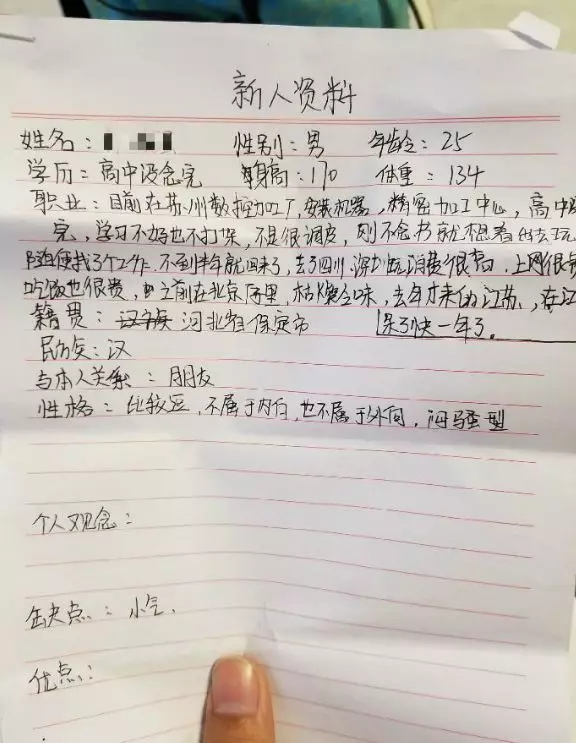 新人资料
姓名: 性别:男 年龄:25
学历:高中没念完 身高:170 体重:134
职业:目前在苏州数控加工厂,安装机器,精密加工中心,高中没
完,学习不好也不打架,不是很调皮,刚不念书就想着出去玩
随便找了个工作,不到半年就回来了,去了四川 深圳 消费很高,上网很贵
吃饭也很贵,之前在北京 库里,枯燥乏味,去年才来的江苏,在江
籍贯: 河北省保定市 苏了快一年了.
民族:汉
与本人关系:朋友
性格:比较逗,不属于内向,也不属于外向,闷骚型
个人观念:
缺点:小气.
优点: